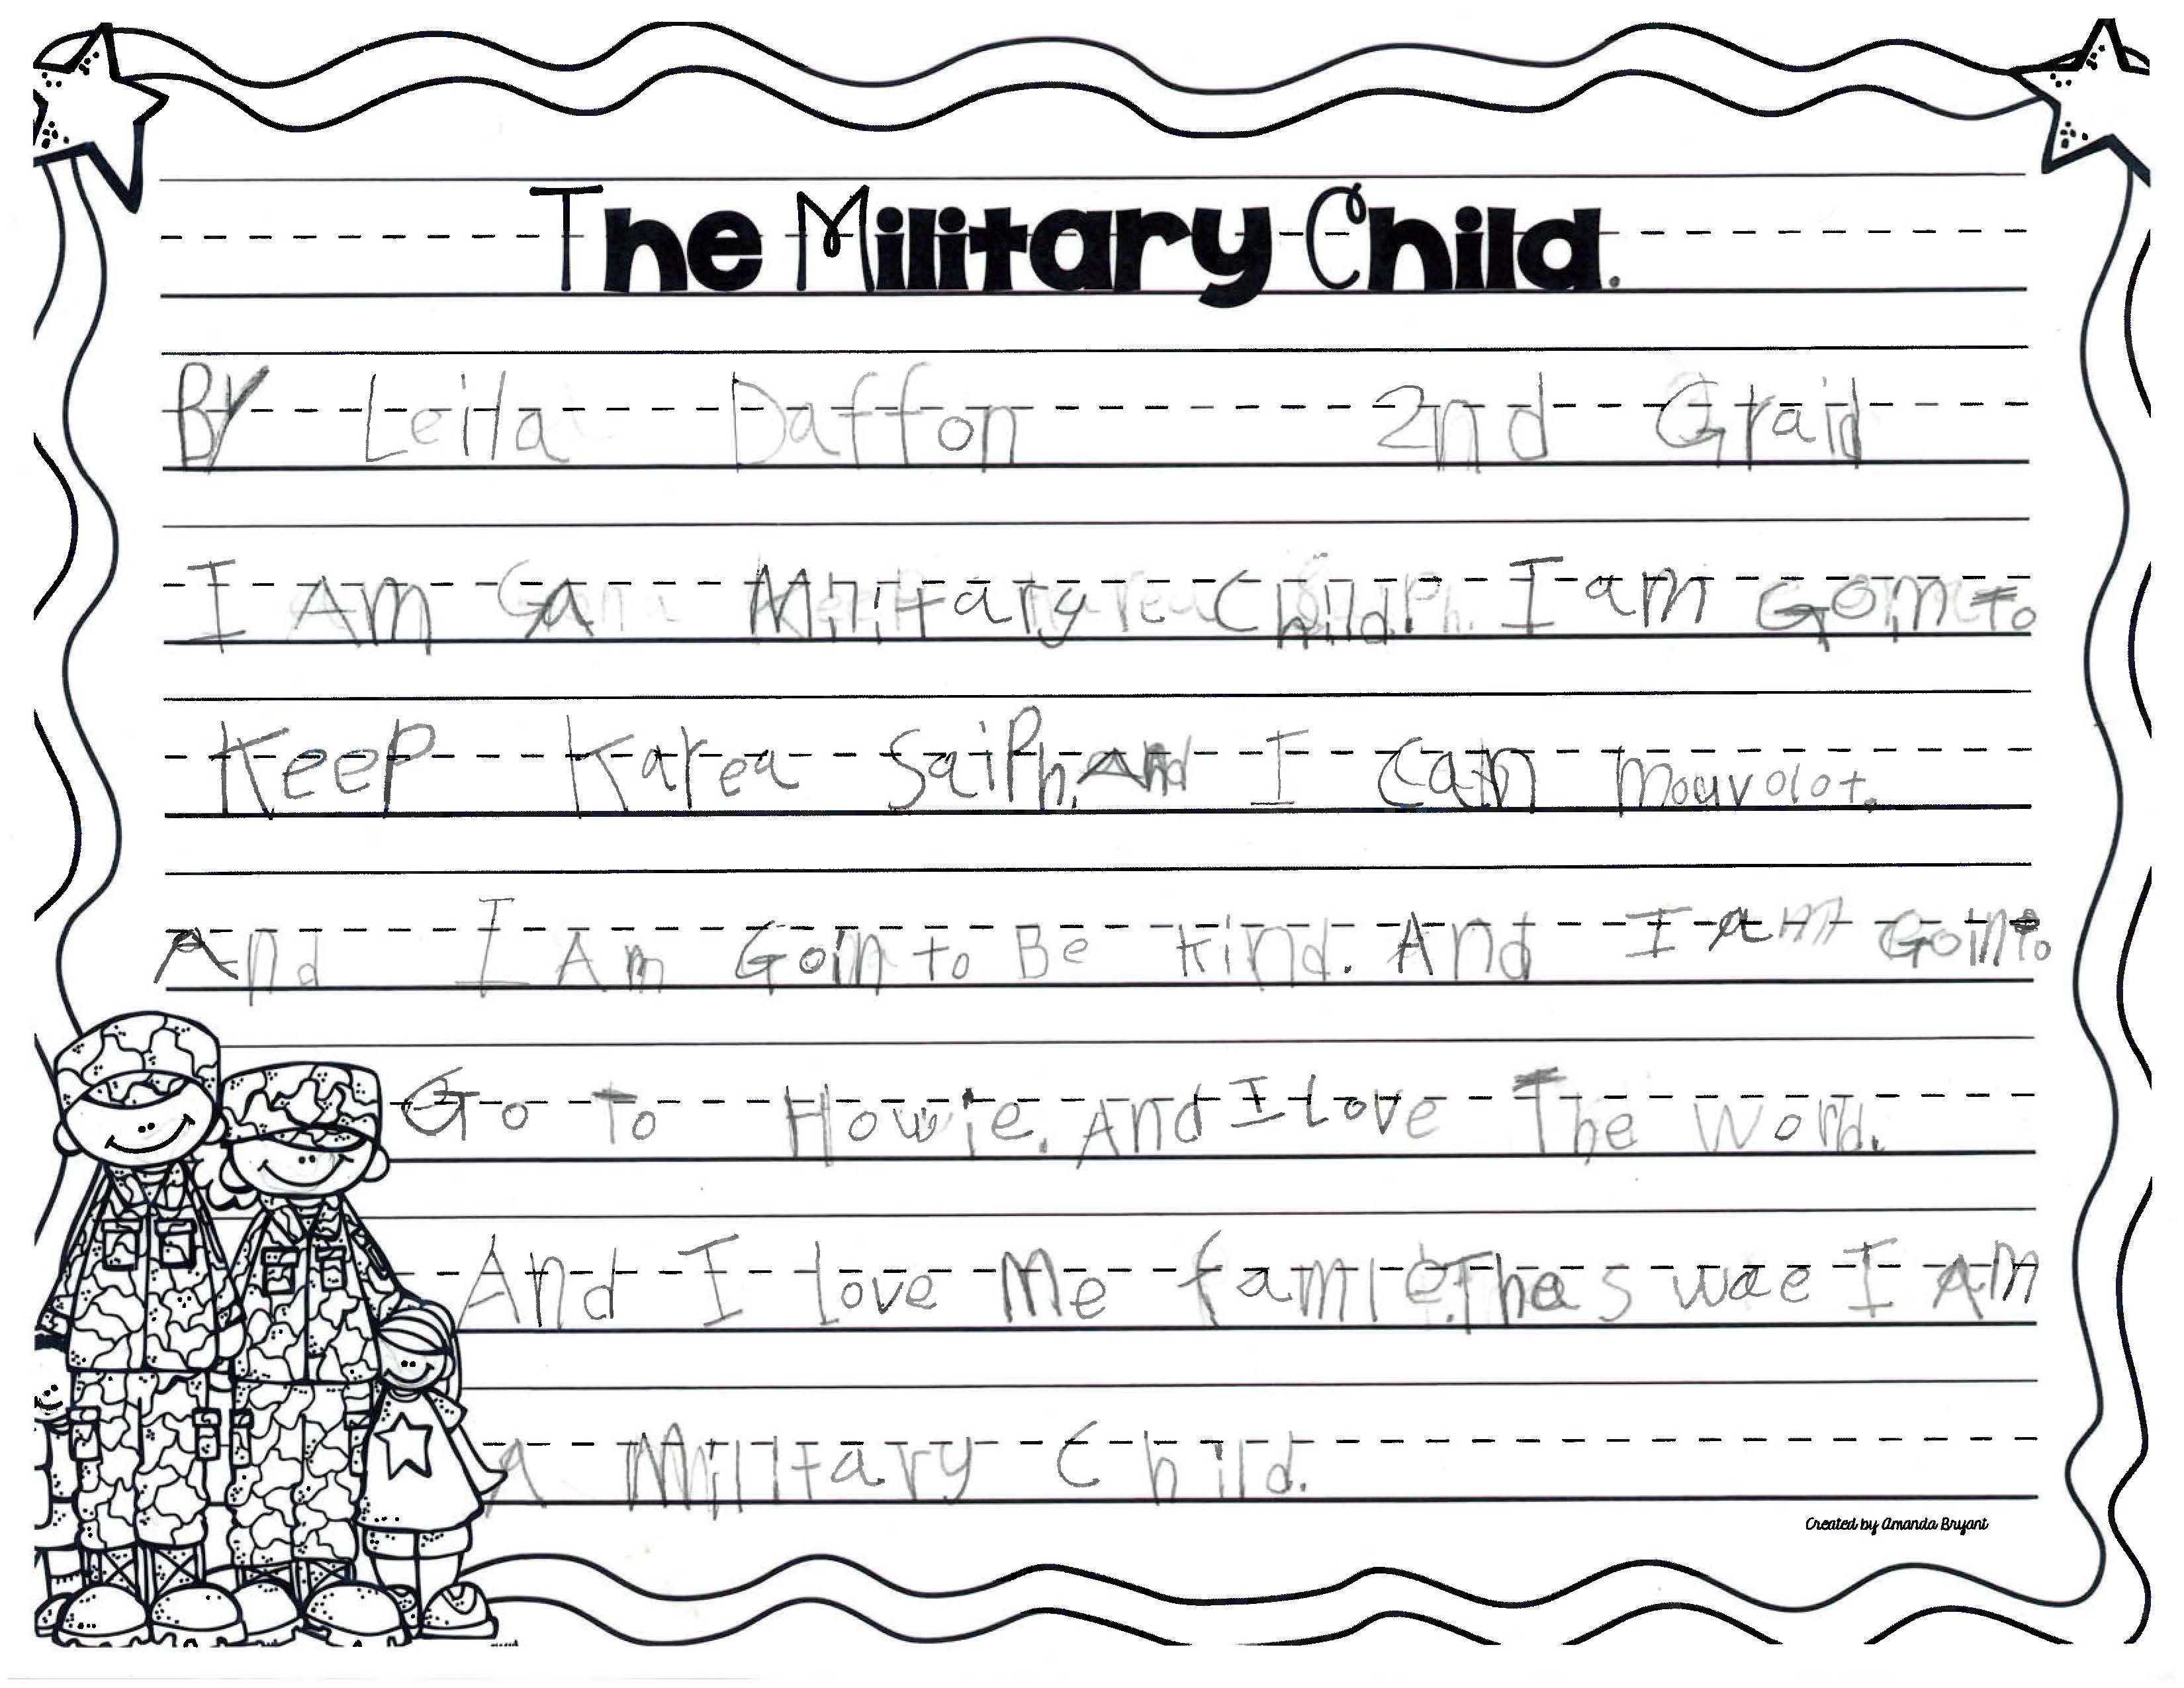 The Military Child.
By Leila Daffon 2nd Graid
I Am a Military Child. I am Goin to
Keep Karea Saiph. And I can mouvolot.
And I Am Goin to Be Kind. And I am Goin to
Go To Howie. And I Love The World.
And I love Me famle. Thas wae I AM
a Military Child.
Created by Amanda Bryant